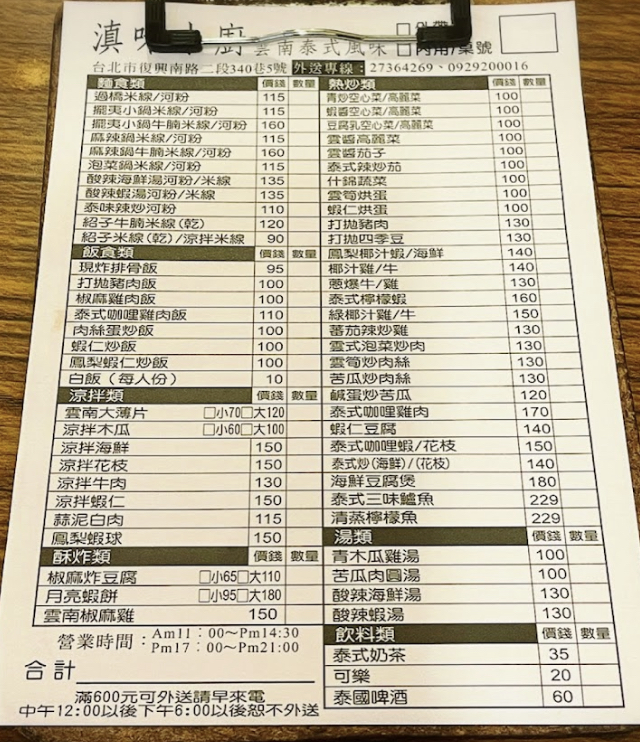 滇味小廚 雲南泰式風味 □外帶
□內用/桌號
台北市復興南路二段340巷5號 外送專線：27364269、0929200016
麵食類 價錢 數量
過橋米線/河粉 115
擺夷小鍋米線/河粉 115
擺夷小鍋牛腩米線/河粉 160
麻辣鍋米線/河粉 115
麻辣鍋牛腩米線/河粉 160
泡菜鍋米線/河粉 115
酸辣海鮮湯河粉/米線 135
酸辣蝦湯河粉/米線 135
泰味辣炒河粉 110
紹子牛腩米線(乾) 120
紹子米線(乾)/涼拌米線 90
飯食類 價錢 數量
現炸排骨飯 95
打拋豬肉飯 100
椒麻雞肉飯 100
泰式咖哩雞肉飯 110
肉絲蛋炒飯 100
蝦仁炒飯 100
鳳梨蝦仁炒飯 100
白飯（每人份） 10
涼拌類 價錢 數量
雲南大薄片 □小70□大120
涼拌木瓜 □小60□大100
涼拌海鮮 150
涼拌花枝 150
涼拌牛肉 130
涼拌蝦仁 150
蒜泥白肉 115
鳳梨蝦球 150
酥炸類 價錢 數量
椒麻炸豆腐 □小65□大110
月亮蝦餅 □小95□大180
雲南椒麻雞 150
營業時間：Am11：00～Pm14:30
Pm17：00～Pm21:00
合計
滿600元可外送請早來電
中午12:00以後下午6:00以後恕不外送
熱炒類 價錢 數量
青炒空心菜/高麗菜 100
蝦醬空心菜/高麗菜 100
豆腐乳空心菜/高麗菜 100
雲醬高麗菜 100
雲醬茄子 100
泰式辣炒茄 100
什錦蔬菜 100
雲筍烘蛋 100
蝦仁烘蛋 100
打拋豬肉 130
打拋四季豆 130
鳳梨椰汁蝦/海鮮 140
椰汁雞/牛 140
蔥爆牛/雞 130
泰式檸檬蝦 160
綠椰汁雞/牛 150
蕃茄辣炒雞 130
雲式泡菜炒肉 130
雲筍炒肉絲 130
苦瓜炒肉絲 130
鹹蛋炒苦瓜 120
泰式咖哩雞肉 170
蝦仁豆腐 140
泰式咖哩蝦/花枝 150
泰式炒(海鮮)/(花枝) 140
海鮮豆腐煲 180
泰式三味鱸魚 229
清蒸檸檬魚 229
湯類 價錢 數量
青木瓜雞湯 100
苦瓜肉圓湯 100
酸辣海鮮湯 130
酸辣蝦湯 130
飲料類 價錢 數量
泰式奶茶 35
可樂 20
泰國啤酒 60